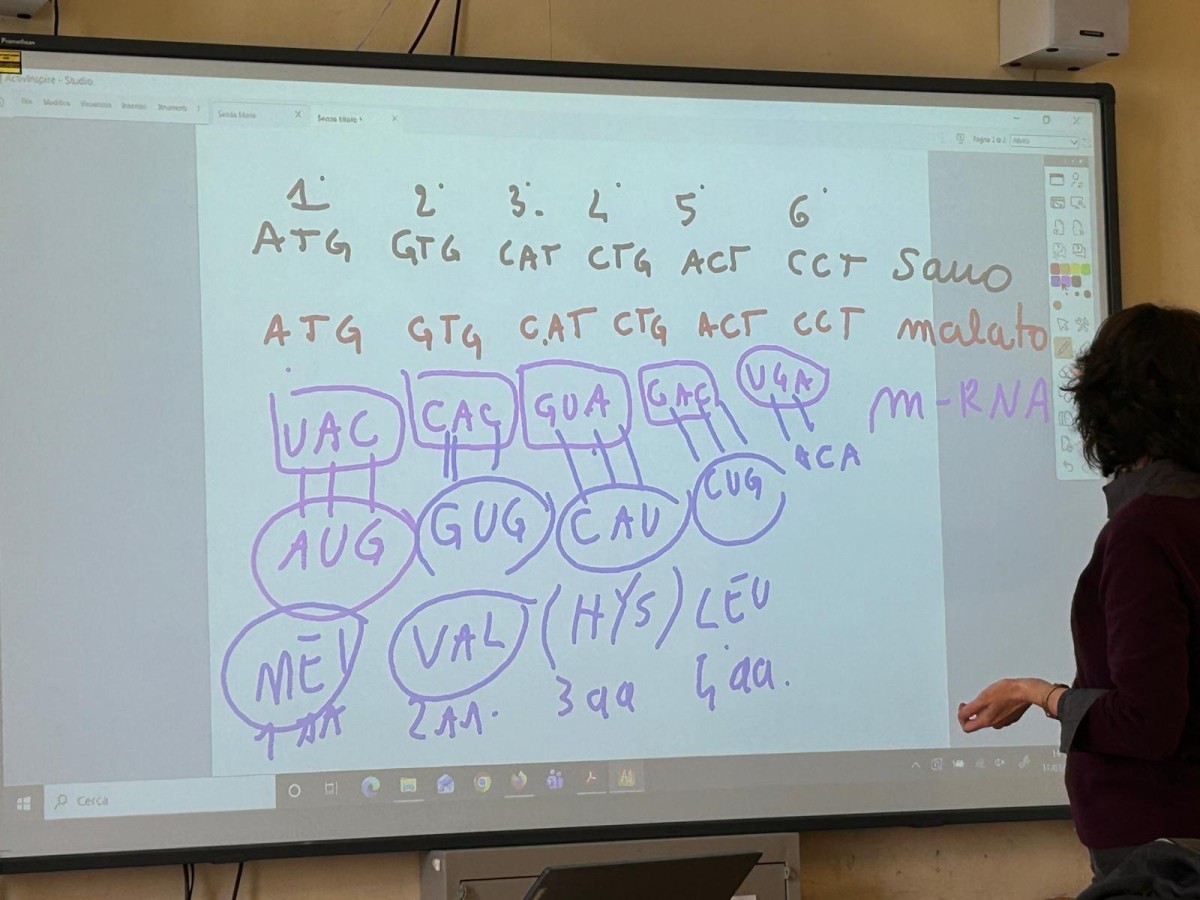 Promethean
ActivInspire - Studio
File Modifica Visualizza Inserisci Strumenti ?
Senza titolo Senza titolo *
Pagina 2 di 2
1° 2° 3. 4° 5° 6°
ATG GTG CAT CTG ACT CCT Sano
ATG GTG CAT CTG ACT CCT malato
UAC CAC GUA GAC UGA m-RNA
AUG GUG CAU CUG ACA
MET VAL (HYS) LEU
1 AA 2 AA. 3 aa 4 aa.
Cerca